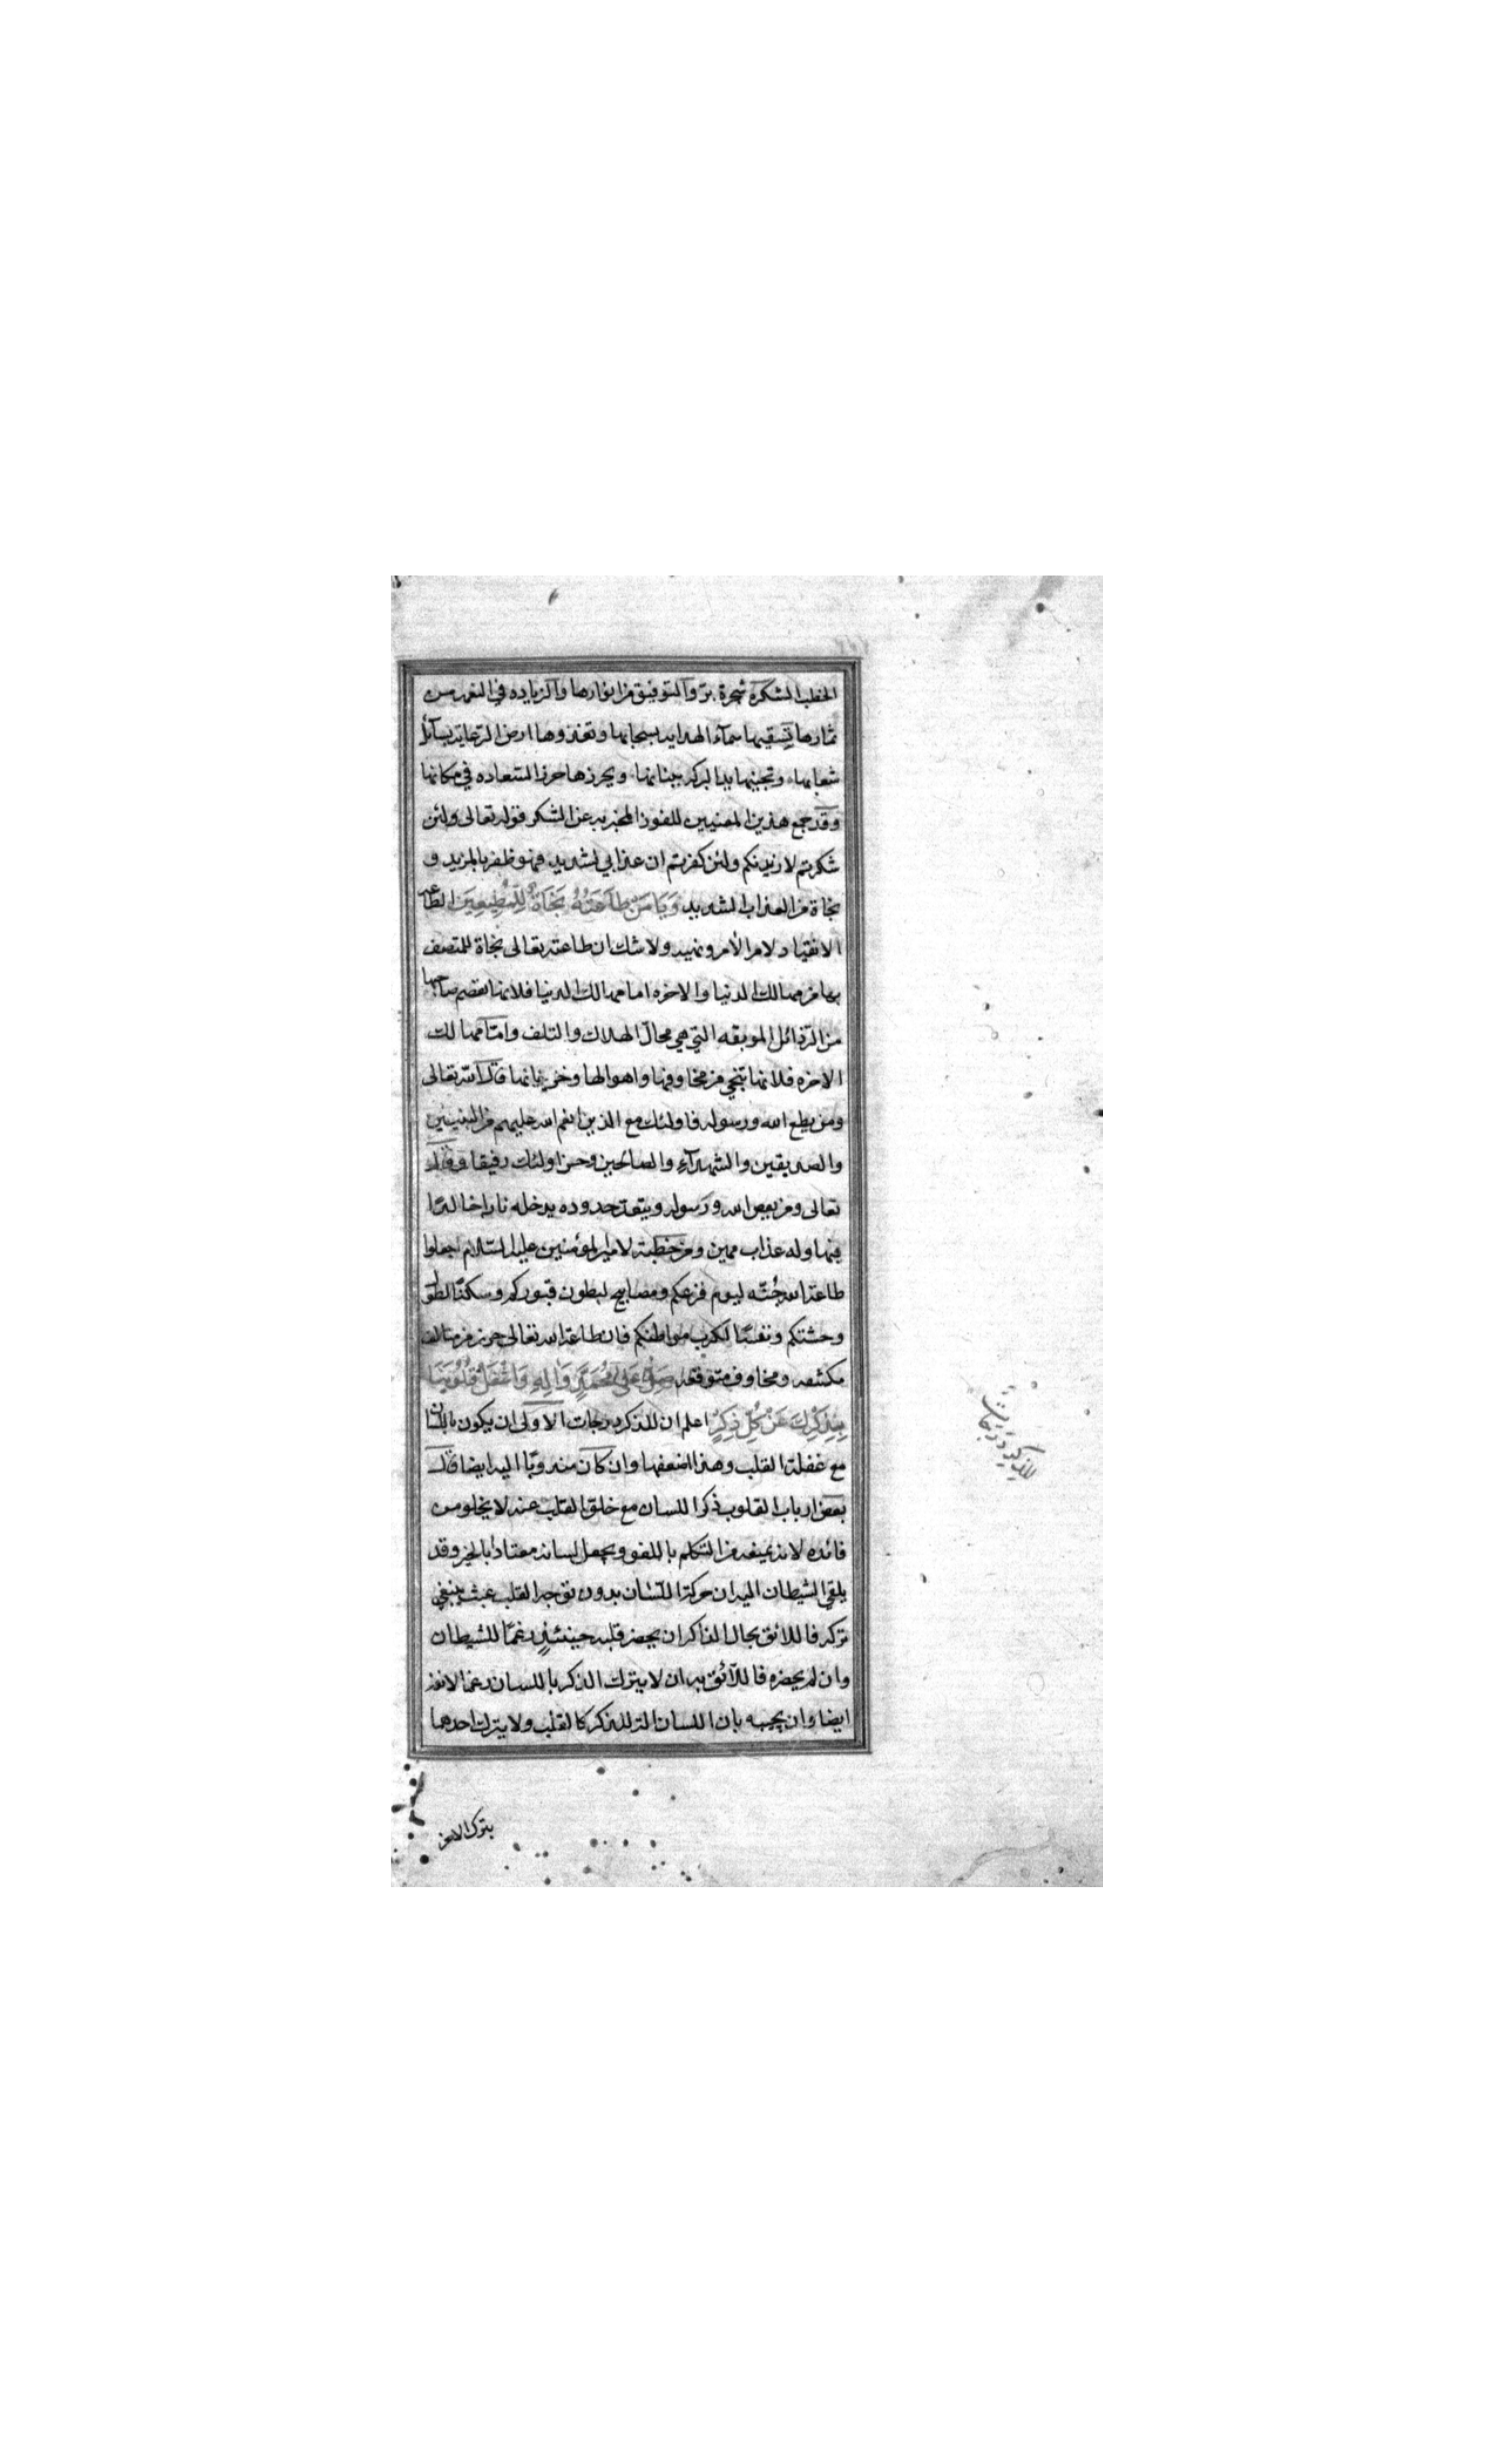 الخطب الشكره شجرة برّ والتوفيق من انوارها والزياده في النعم من
ثمارها تسقيها سماء الهدايه بسحابها وتغذوها ارض الرعايه بسائل
شعابها وتجنيها يد البركه ببنانها ويحرزها حرز السعاده في مكانها
وقد جمع هذين المعنيين للفوز المخبر به عن الشكر قوله تعالى ولئن
شكرتم لازيدنكم ولئن كفرتم ان عذابي لشديد فهو ظفر بالمزيد و
نجاة من العذاب الشديد وَيَا مَنْ طَاعَتُهُ نَجَاةٌ لِلْمُطِيعِينَ الطاعه
الانقياد لامر الأمر ونهيه ولا شك ان طاعته تعالى نجاة للمتصف
بها من مهالك الدنيا والاخره اما مهالك الدنيا فلانها تعصم صاحبها
من الرّذائل الموبقه التي هي محالّ الهلاك والتلف وامّا مهالك
الاخره فلانها تنجي من مخاوفها واهوالها وخزياتها قال الله تعالى
ومن يطع الله ورسوله فاولئك مع الذين انعم الله عليهم من النبيين
والصديقين والشهدآء والصالحين وحسن اولئك رفيقا وقال
تعالى ومن يعص الله ورسوله ويتعد حدوده يدخله نارا خالدًا
فيها وله عذاب مهين ومن خطبة لامير المؤمنين عليه السّلام اجعلوا
طاعة الله جُنّه ليوم فزعكم ومصابيح لبطون قبوركم وسكنًا لطول
وحشتكم ونفسًا لكرب مواطنكم فان طاعة الله تعالى حرز من متالف
مكتنفه ومخاوف متوقعه صَلِّ عَلَى مُحَمَّدٍ وَالِهِ وَاشْغَلْ قُلُوبَنَا
بِذِكْرِكَ عَنْ كُلِّ ذِكْرٍ اعلم ان للذكر درجات الاولى ان يكون باللسان
مع غفلة القلب وهذا اضعفها وان كان مندوبًا اليه ايضا قال
بعض ارباب القلوب ذكر اللسان مع خلق القلب عنه لا يخلو من
فائده لانه يمنعه من التكلم باللغو ويجعل لسانه معتادًا بالخير وقد
يلقي الشيطان اليه ان حركة اللسان بدون توجه القلب عبث ينبغي
تركه فاللائق بحال الذاكر ان يحضر قلبه حينئذٍ رغمًا للشيطان
وان لم يحضره فاللآئق به ان لا يترك الذكر باللسان رغما لانفه
ايضا وان يجيبه بان اللسان آلة للذكر كالقلب ولا يترك احدهما
بترك الاخر
للذكر درجات